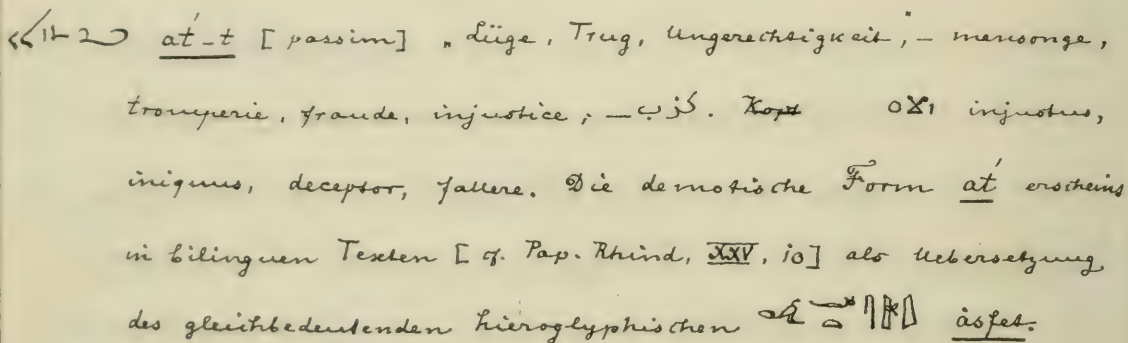 át_t [passim] „Lüge, Trug, Ungerechtigkeit,_ mensonge,
tromperie, fraude, injustice; _ كزب. Kopt ⲟϫⲓ injustus,
iniquus, deceptor, fallere. Die demotische Form át erscheint
in bilinguen Texten [cf. Pap. Rhind, XXV, 10] als Uebersetzung
des gleichbedeutenden hieroglyphischen àsfet.